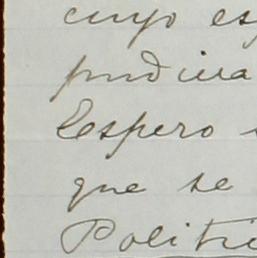 cuyo es
pudiera
Espero s
que se
Politic